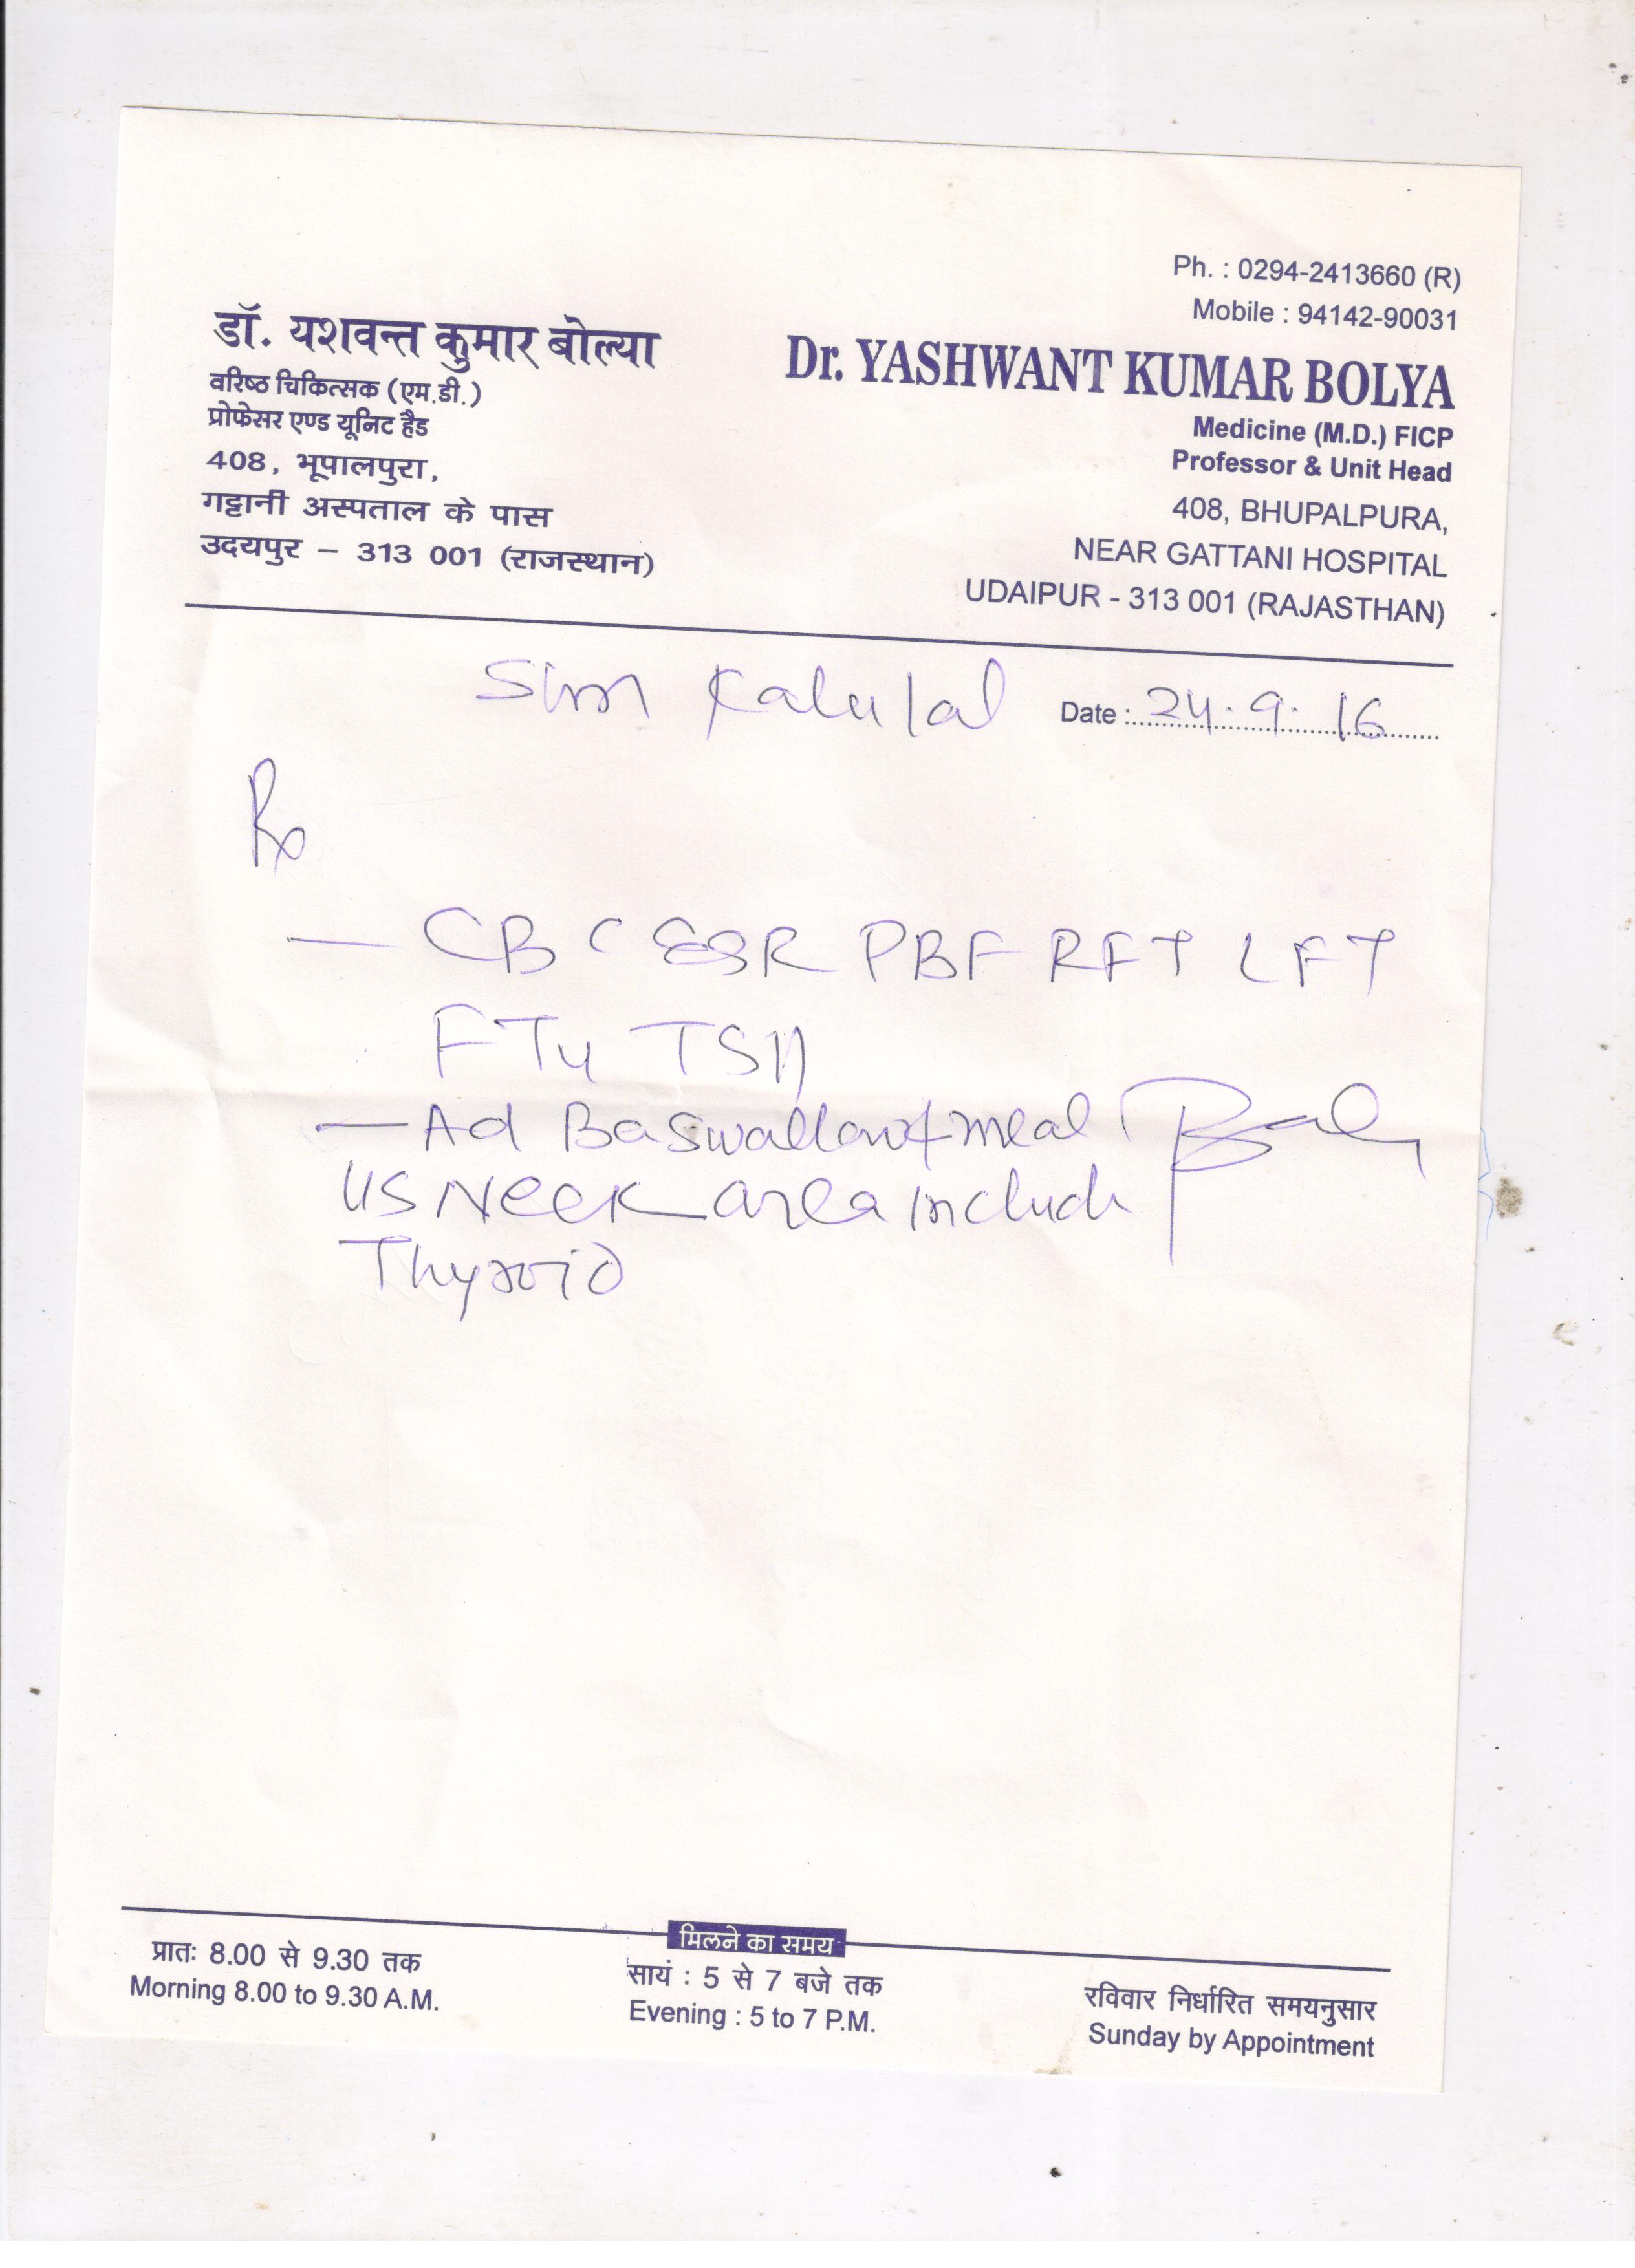 Ph. : 0294-2413660 (R)
Mobile : 94142-90031
डॉ. यशवन्त कुमार बोल्या
वरिष्ठ चिकित्सक (एम.डी.)
प्रोफेसर एण्ड यूनिट हैड
408, भूपालपुरा,
गट्टानी अस्पताल के पास
उदयपुर – 313 001 (राजस्थान)
Dr. YASHWANT KUMAR BOLYA
Medicine (M.D.) FICP
Professor & Unit Head
408, BHUPALPURA,
NEAR GATTANI HOSPITAL
UDAIPUR - 313 001 (RAJASTHAN)
Kalulal Date : 24.9.16
Rx
— CBC ESR PBF RFT LFT
FT4 TSH
— Ad Ba Swallow + meal
US Neck area include
Thyroid
मिलने का समय
प्रातः 8.00 से 9.30 तक
Morning 8.00 to 9.30 A.M.
सायं : 5 से 7 बजे तक
Evening : 5 to 7 P.M.
रविवार निर्धारित समयनुसार
Sunday by Appointment